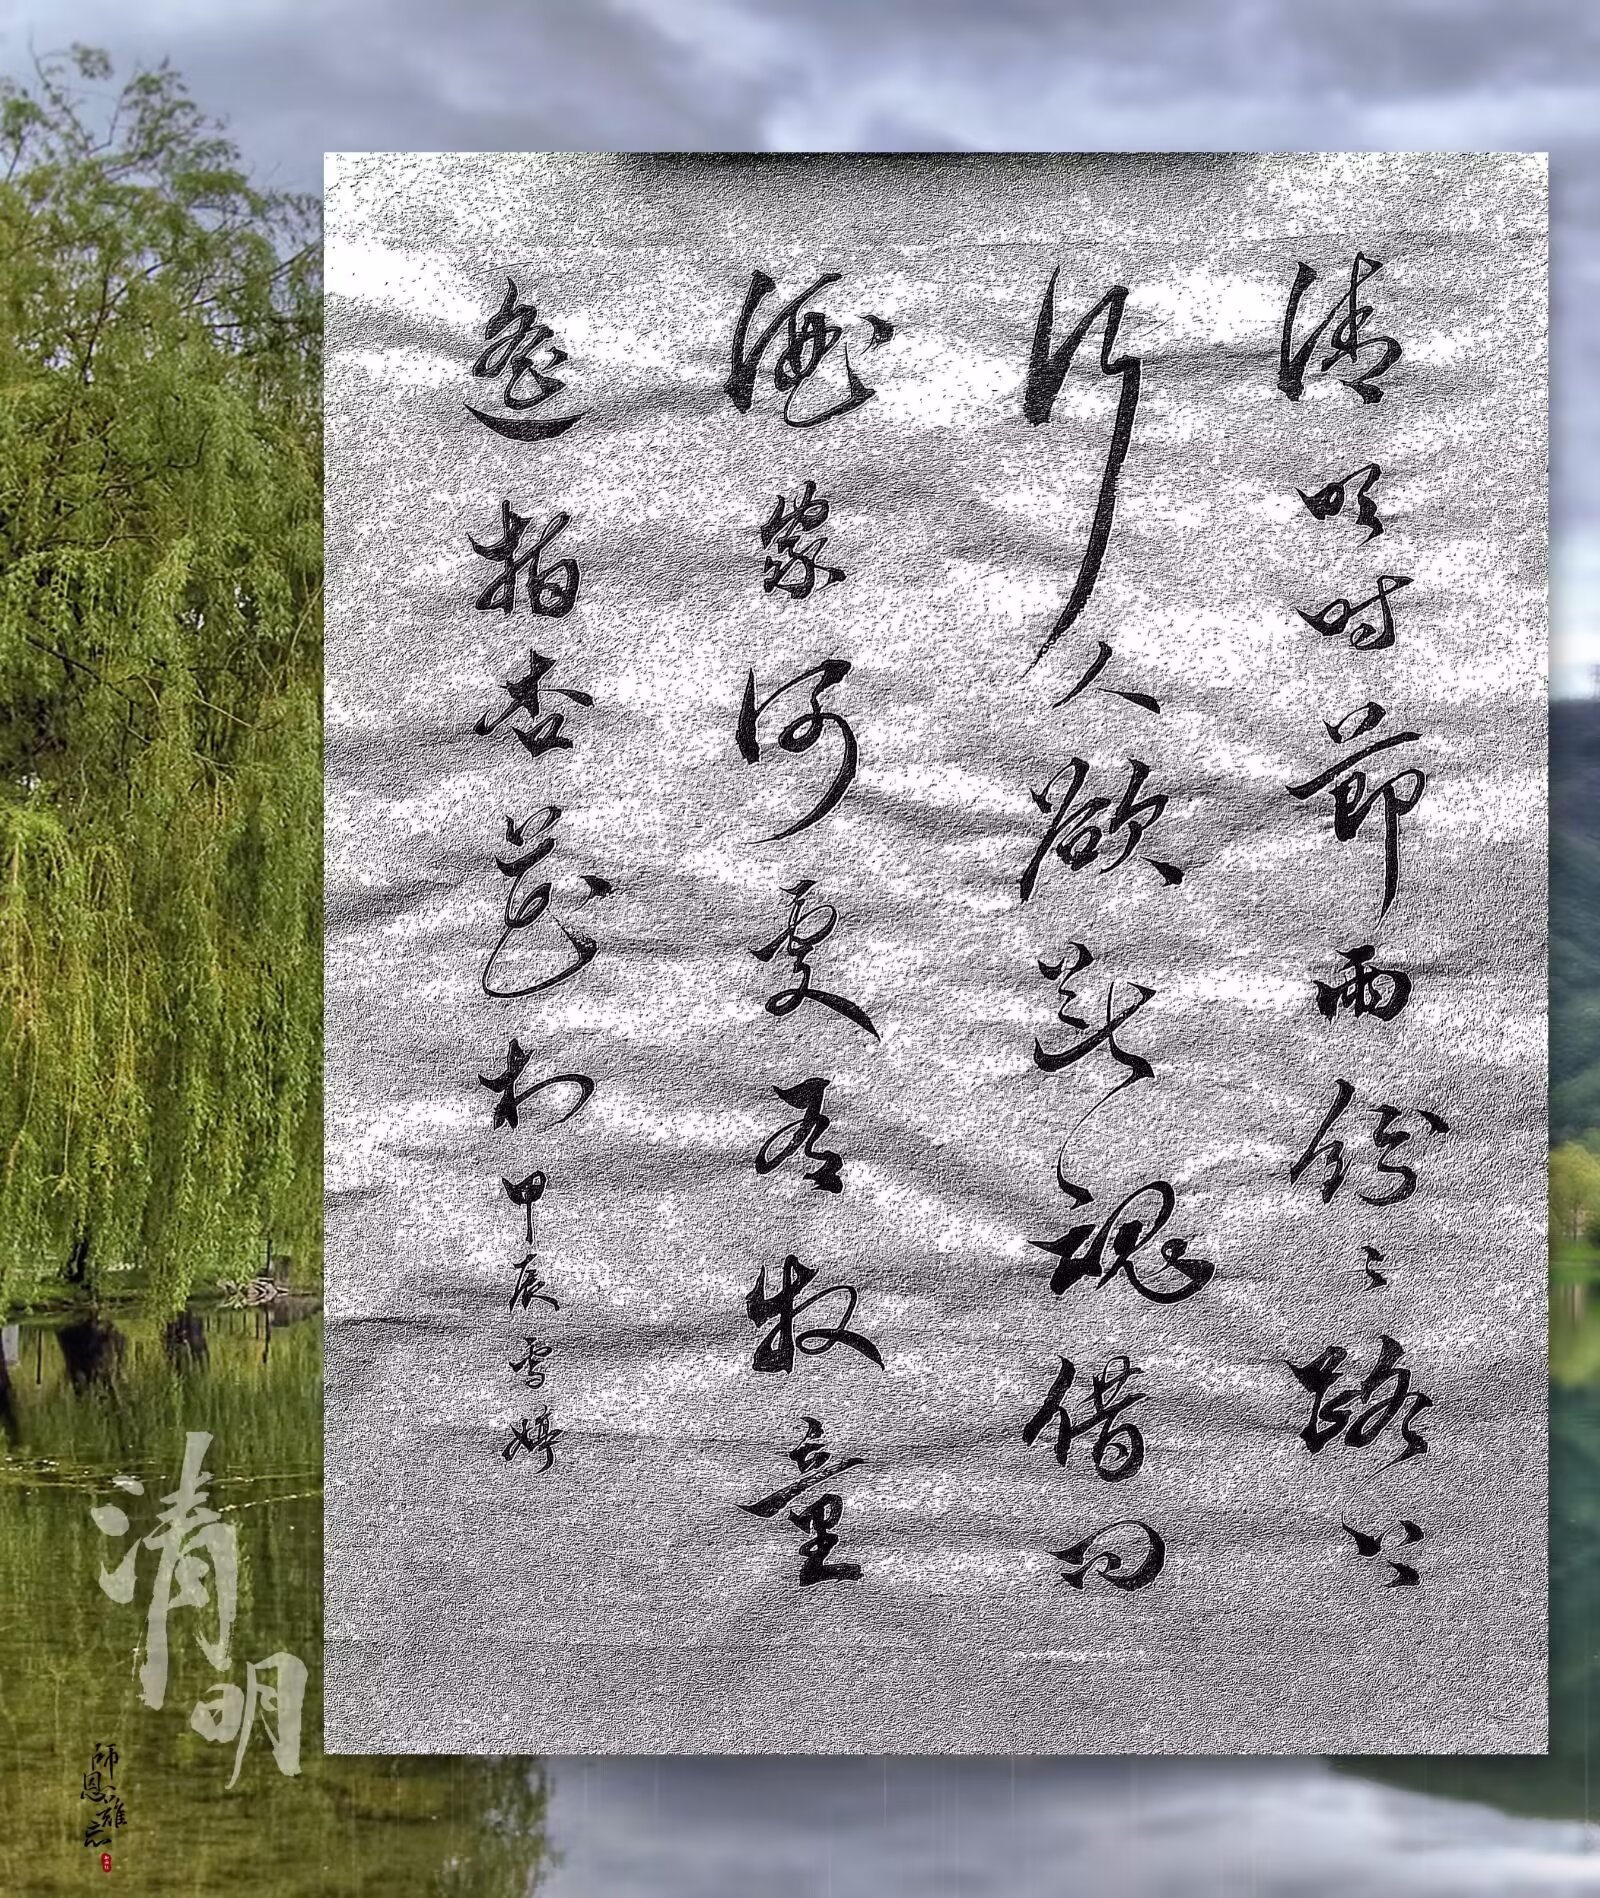 清明时節雨紛々路上
行人欲断魂借问
酒家何處有牧童
遥指杏花村 甲辰雪婷
清明
師恩難忘